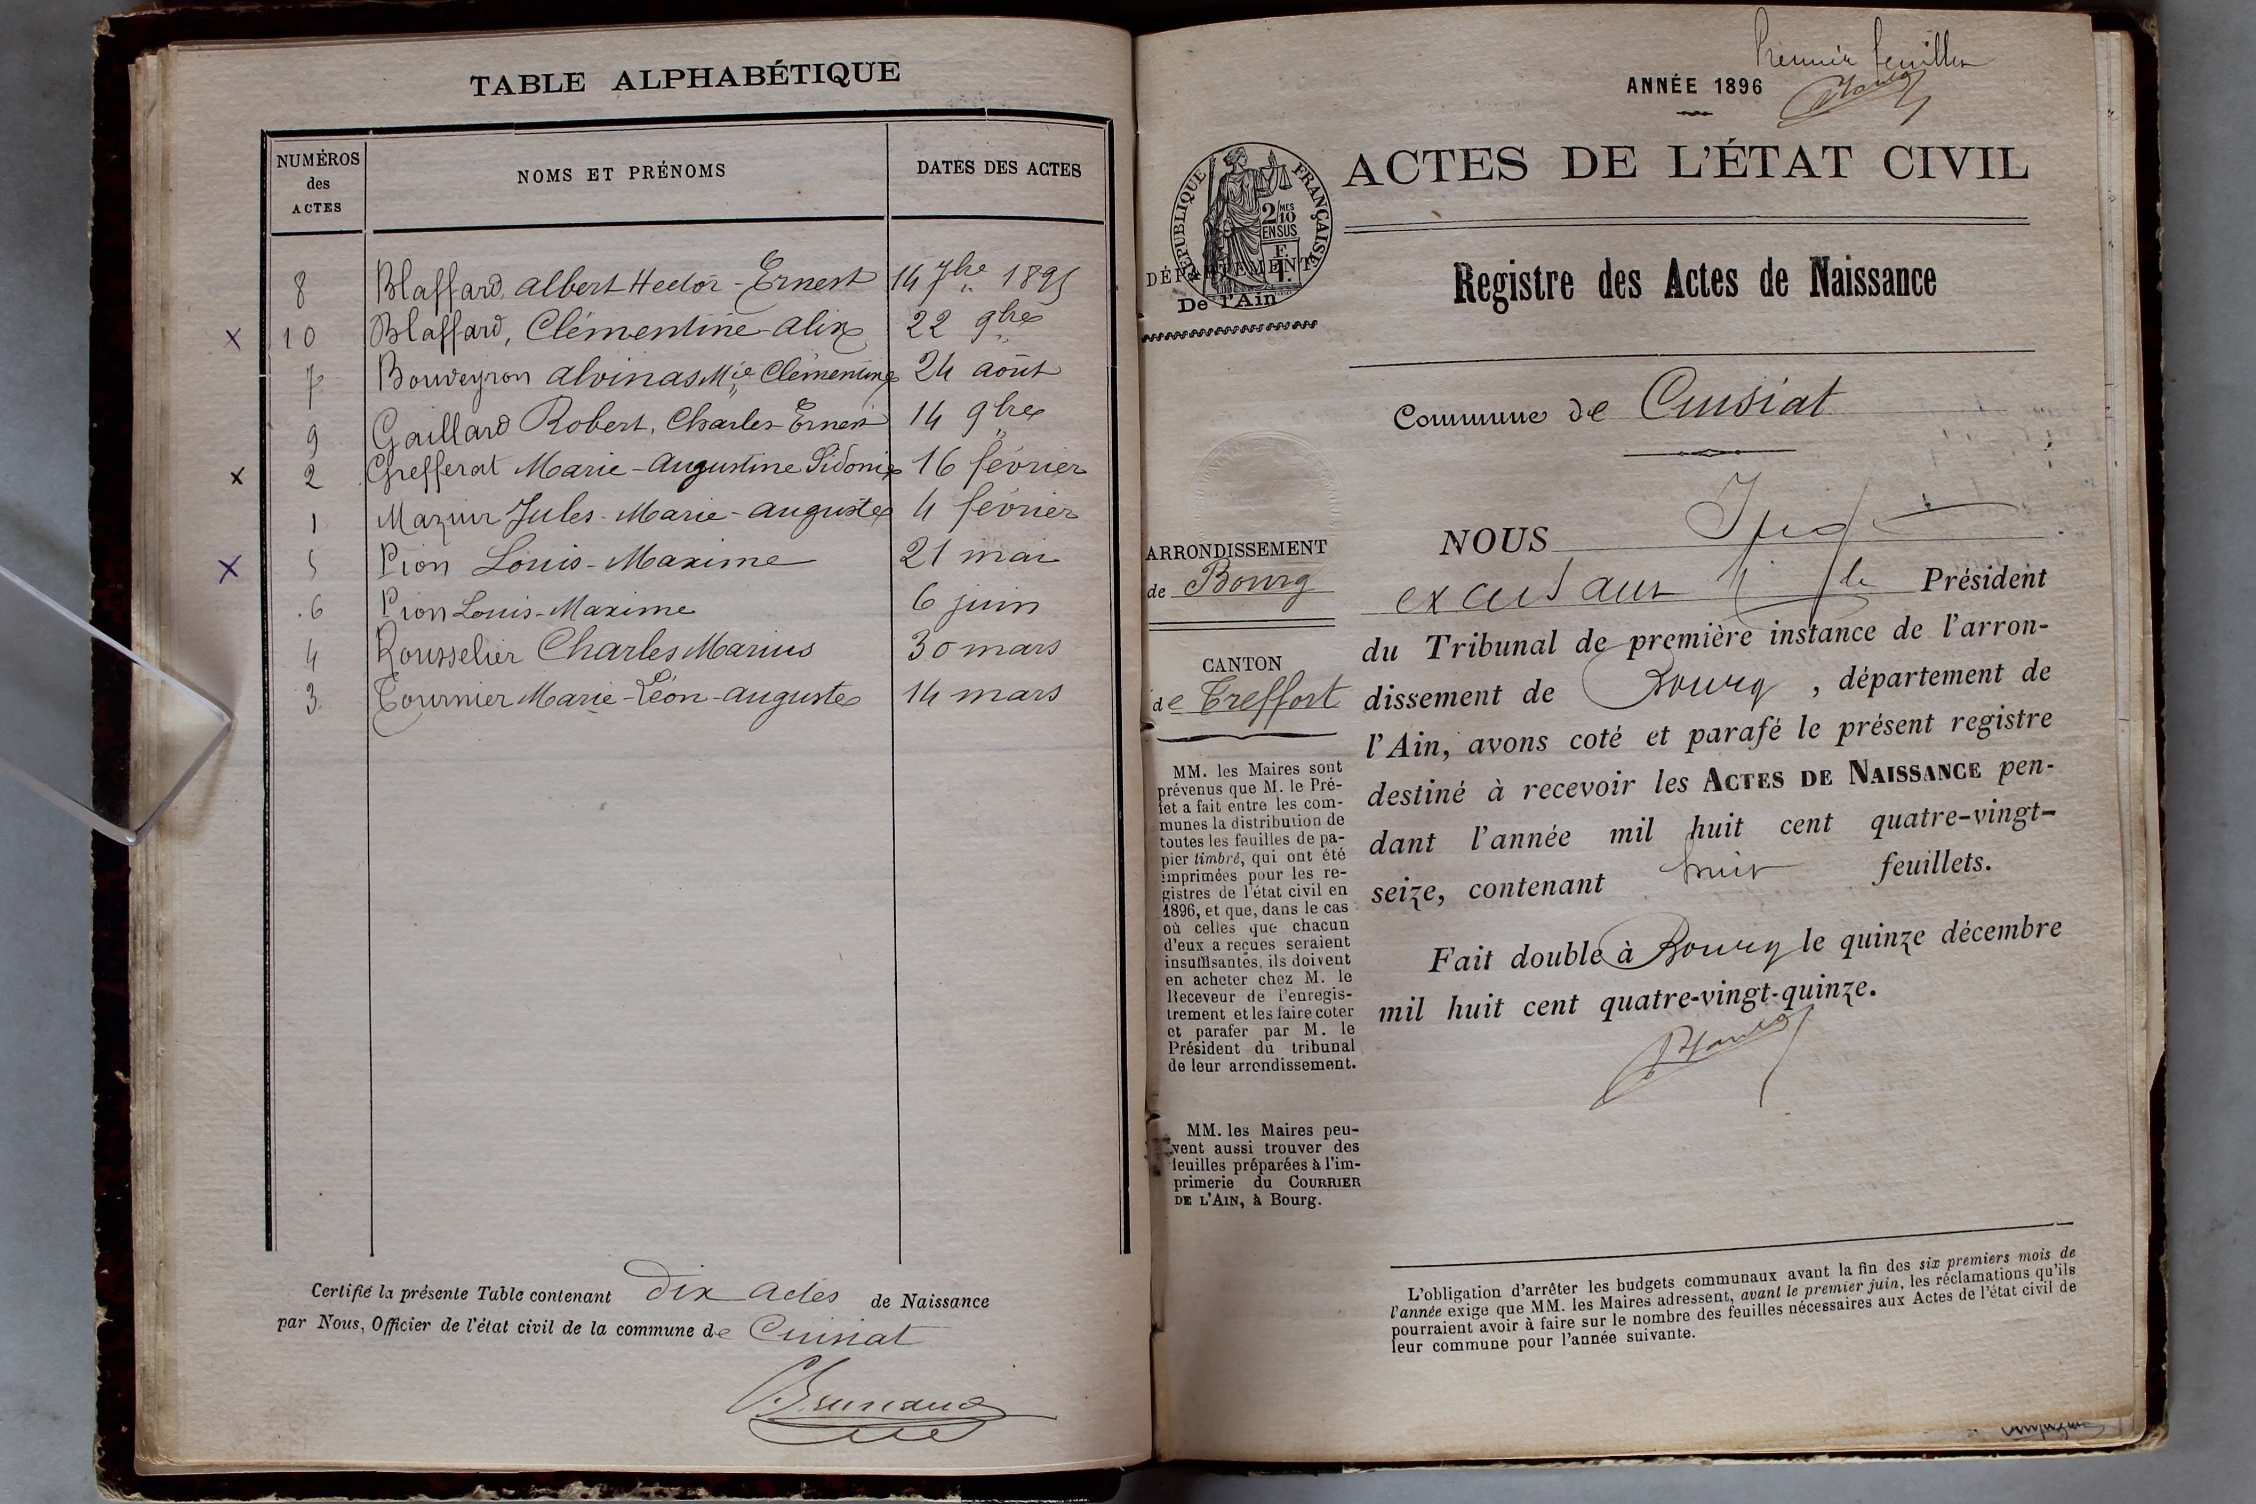 TABLE ALPHABÉTIQUE
NUMÉROS
des
ACTES
NOMS ET PRÉNOMS
DATES DES ACTES
8 Blaffard, Albert Hector-Ernest 14 7bre 1895
x 10 Blaffard, Clémentine-Alix 22 9bre
7 Bouveyron Alvinas Mie Clémentine 24 août
9 Gaillard Robert, Charles-Ernest 14 9bre
x 2 Grefferat Marie-Augustine Sidonie 16 février
1 Mazuir Jules-Marie-Auguste 4 février
x 5 Pion Louis-Maxime 21 mai
6 Pion Louis-Maxime 6 juin
4 Rousselier Charles Marius 30 mars
3 Tournier Marie-Léon-Auguste 14 mars
Certifié la présente Table contenant dix actes de Naissance
par Nous, Officier de l'état civil de la commune de Cuisiat
Premier feuillet
ANNÉE 1896
ACTES DE L'ÉTAT CIVIL
RÉPUBLIQUE FRANÇAISE
2/10 MES
EN SUS
DÉPARTEMENT
De l'Ain
Registre des Actes de Naissance
Commune de Cuisiat
ARRONDISSEMENT
de Bourg
CANTON
de Treffort
MM. les Maires sont
prévenus que M. le Pré-
fet a fait entre les com-
munes la distribution de
toutes les feuilles de pa-
pier timbré, qui ont été
imprimées pour les re-
gistres de l'état civil en
1896, et que, dans le cas
où celles que chacun
d'eux a reçues seraient
insuffisantes, ils doivent
en acheter chez M. le
Receveur de l'enregis-
trement et les faire coter
et parafer par M. le
Président du tribunal
de leur arrondissement.
MM. les Maires peu-
vent aussi trouver des
feuilles préparées à l'im-
primerie du COURRIER
DE L'AIN, à Bourg.
NOUS
Président
du Tribunal de première instance de l'arron-
dissement de Bourg, département de
l'Ain, avons coté et parafé le présent registre
destiné à recevoir les ACTES DE NAISSANCE pen-
dant l'année mil huit cent quatre-vingt-
seize, contenant huit feuillets.
Fait double à Bourg le quinze décembre
mil huit cent quatre-vingt-quinze.
L'obligation d'arrêter les budgets communaux avant la fin des six premiers mois de
l'année exige que MM. les Maires adressent, avant le premier juin, les réclamations qu'ils
pourraient avoir à faire sur le nombre des feuilles nécessaires aux Actes de l'état civil de
leur commune pour l'année suivante.